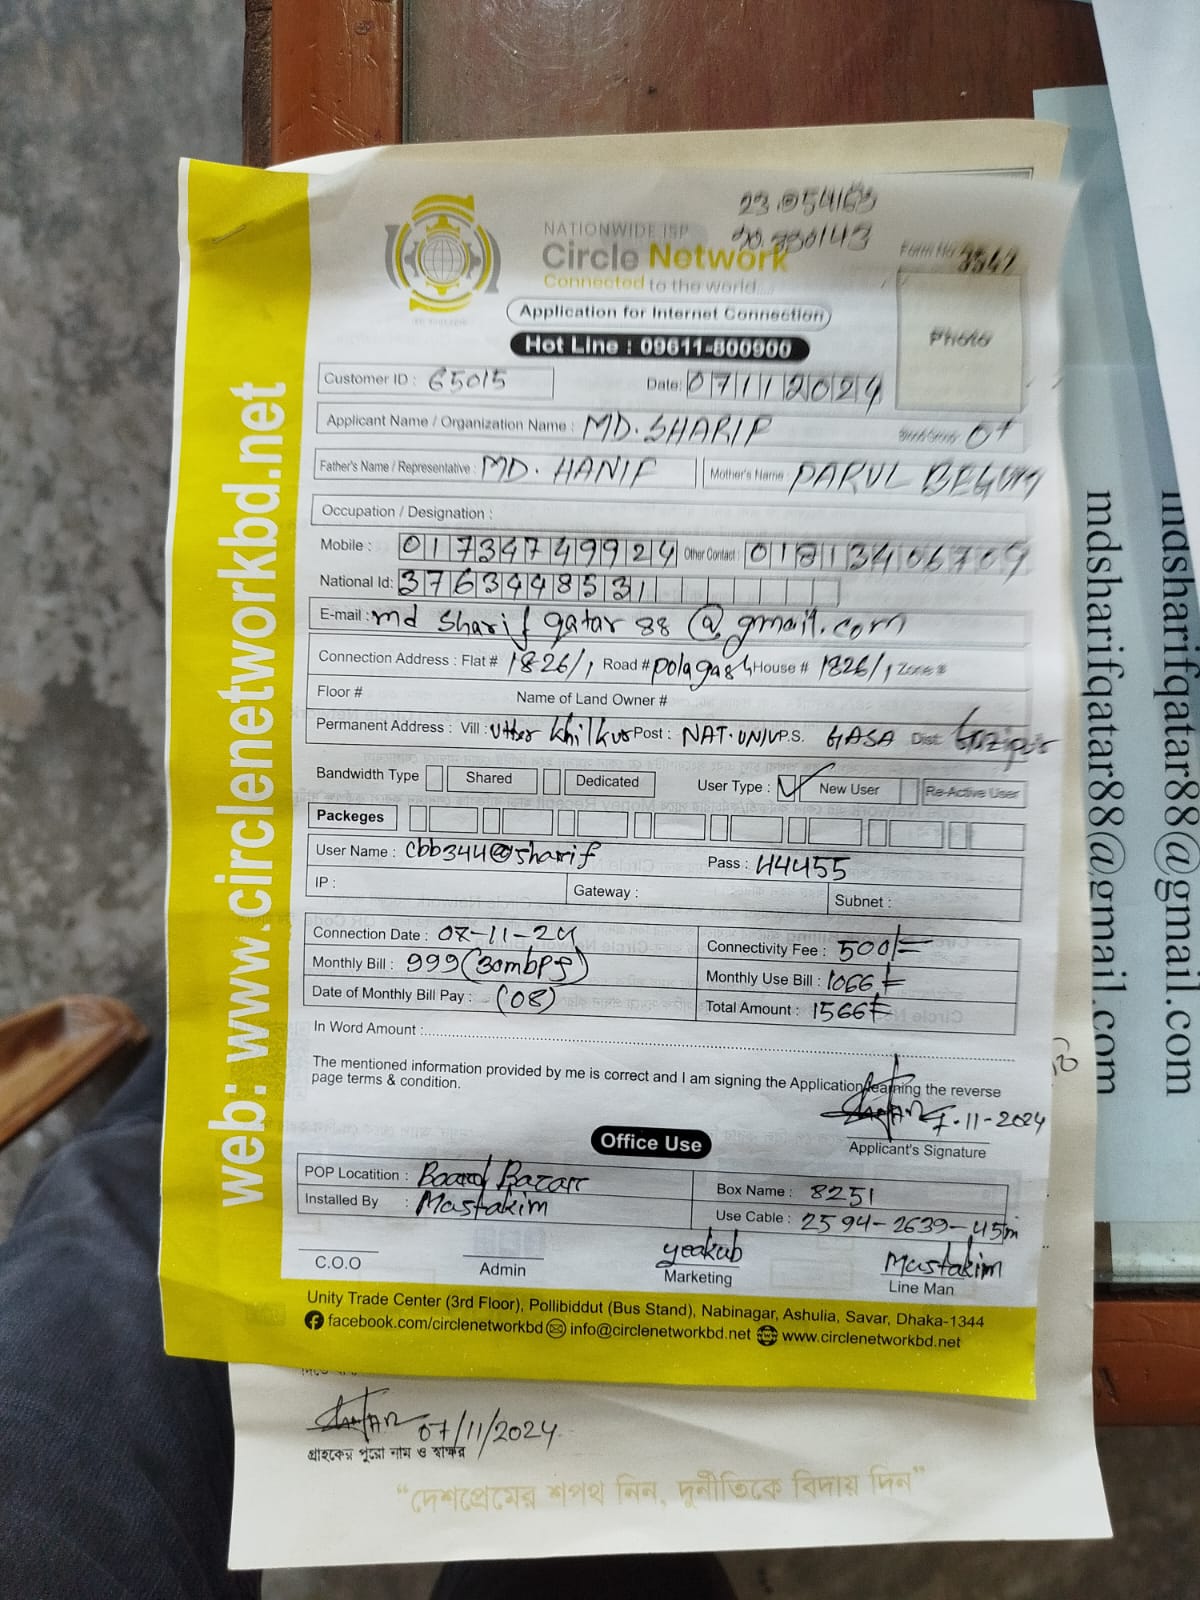 23.954163
90.330143
NATIONWIDE ISP
Circle Network
Connected to the world....
Form No 3547
Application for Internet Connection
Hot Line : 09611-800900
Photo
Customer ID : 65015 Date: 07112024
Applicant Name / Organization Name : MD. SHARIF Blood Group O+
Father's Name / Representative : MD. HANIF Mother's Name PARUL BEGUM
Occupation / Designation :
Mobile : 01734749924 Other Contact : 01813406709
National Id: 3763448531
E-mail : md sharif qatar 88 @ gmail.com
Connection Address : Flat # 1826/1 Road # polagash House # 1826/1 Zone #
Floor # Name of Land Owner #
Permanent Address : Vill : Utter khilkur Post : NAT. UNIV P.S. GASA Dist: Gazipur
Bandwidth Type Shared Dedicated User Type : ✓ New User Re-Active User
Packeges
User Name : cbb344@sharif Pass : 44455
IP : Gateway : Subnet :
Connection Date : 07-11-24 Connectivity Fee : 500/=
Monthly Bill : 999 (30mbps) Monthly Use Bill : 1066/=
Date of Monthly Bill Pay : (08) Total Amount : 1566/=
In Word Amount :
The mentioned information provided by me is correct and I am signing the Application learning the reverse
page terms & condition.
7-11-2024
Applicant's Signature
Office Use
POP Locatition : Board Bazar Box Name : 8251
Installed By : Mastakim Use Cable : 2594-2639-45m
C.O.O Admin yeakub Marketing Mastakim Line Man
Unity Trade Center (3rd Floor), Pollibiddut (Bus Stand), Nabinagar, Ashulia, Savar, Dhaka-1344
facebook.com/circlenetworkbd info@circlenetworkbd.net www.circlenetworkbd.net
web: www.circlenetworkbd.net
07/11/2024
গ্রাহকের পুরো নাম ও স্বাক্ষর
“দেশপ্রেমের শপথ নিন, দুর্নীতিকে বিদায় দিন”
mdsharifqatar88@gmail.com
mdsharifqatar88@gmail.com